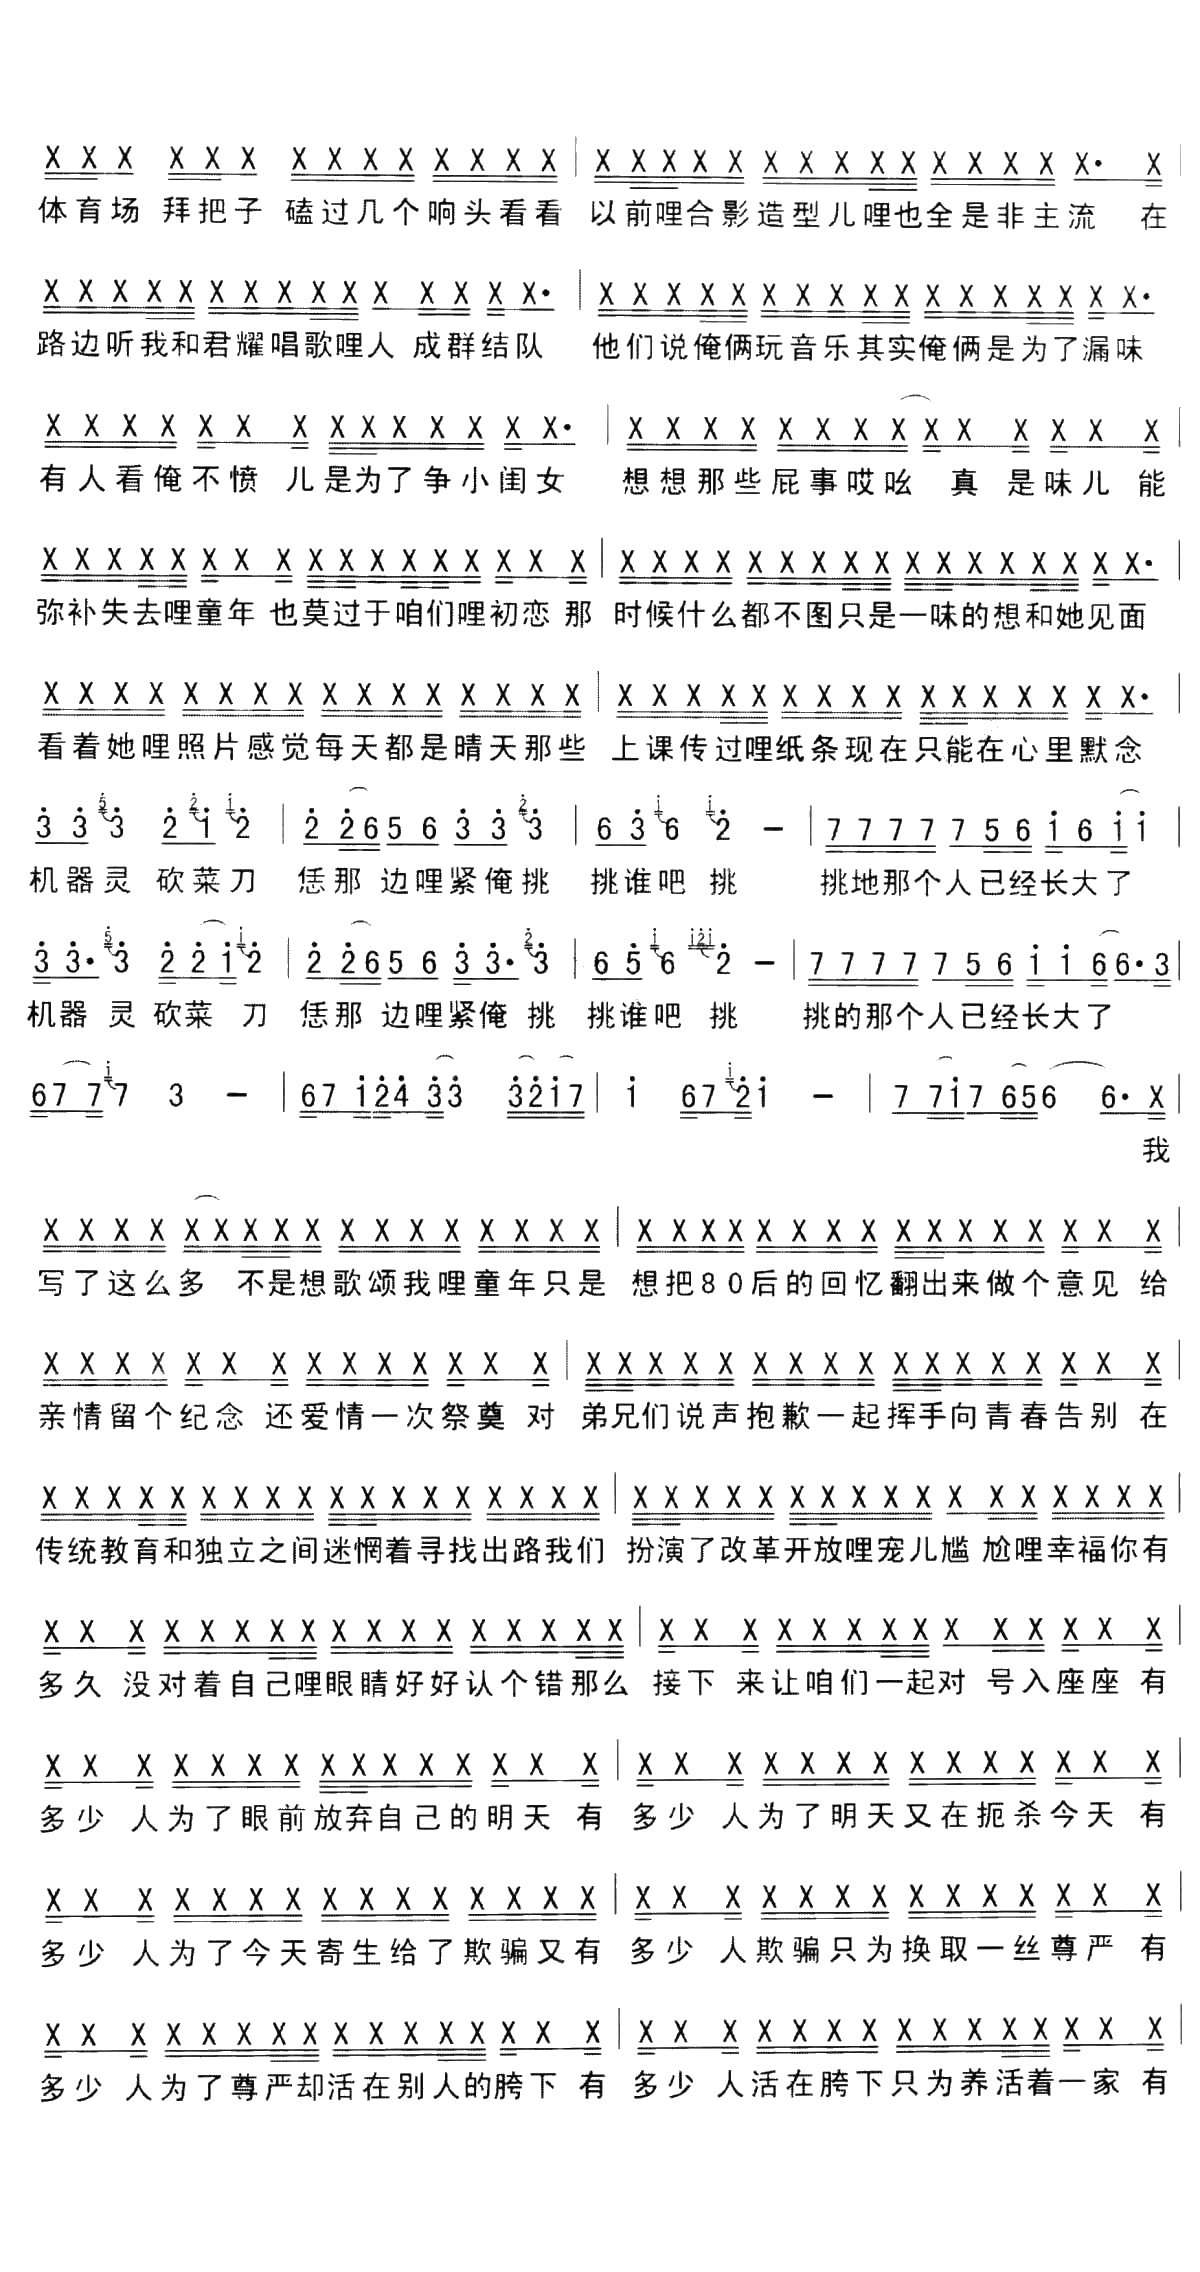 X X X X X X X X X X X X X X | X X X X X X X X X X X X X X X· X
体育场 拜把子 磕过几个响头看看 以前哩合影造型儿哩也全是非主流 在
X X X X X X X X X X X X X X X· | X X X X X X X X X X X X X X X X·
路边听我和君耀唱歌哩人 成群结队 他们说俺俩玩音乐其实俺俩是为了漏味
X X X X X X X X X X X X X X· | X X X X X X X X X X X X X X
有人看俺不愤 儿是为了争小闺女 想想那些屁事哎吆 真 是味儿 能
X X X X X X X X X X X X X X X X X | X X X X X X X X X X X X X X X X X·
弥补失去哩童年 也莫过于咱们哩初恋 那 时候什么都不图只是一味的想和她见面
X X X X X X X X X X X X X X X X | X X X X X X X X X X X X X X X X·
看着她哩照片感觉每天都是晴天那些 上课传过哩纸条现在只能在心里默念
3 3 5 3 2 2 1 i 2 | 2 2 6 5 6 3 3 2 3 | 6 3 i 6 i 2 – | 7 7 7 7 7 5 6 i 6 i i |
机器灵 砍菜刀 恁那 边哩紧俺挑 挑谁吧 挑 挑地那个人已经长大了
3 3· 5 3 2 2 i i 2 | 2 2 6 5 6 3 3· 2 3 | 6 5 i 6 i2i 2 – | 7 7 7 7 7 5 6 i i 6 6· 3 |
机器 灵 砍菜 刀 恁那 边哩紧俺 挑 挑谁吧 挑 挑的那个人已经长大了
6 7 7 i 7 3 – | 6 7 i 2 4 3 3 3 2 i 7 | i 6 7 i 2 i – | 7 7 i 7 6 5 6 6· X |
我
X X X X X X X X X X X X X X X X X | X X X X X X X X X X X X X X X X |
写了这么多 不是想歌颂我哩童年只是 想把80后的回忆翻出来做个意见 给
X X X X X X X X X X X X X X | X X X X X X X X X X X X X X X X |
亲情留个纪念 还爱情一次祭奠 对 弟兄们说声抱歉一起挥手向青春告别 在
X X X X X X X X X X X X X X X X X X | X X X X X X X X X X X X X X X X X |
传统教育和独立之间迷惘着寻找出路我们 扮演了改革开放哩宠儿尴 尬哩幸福你有
X X X X X X X X X X X X X X X X X | X X X X X X X X X X X X X X X |
多久 没对着自己哩眼睛好好认个错那么 接下 来让咱们一起对 号入座座 有
X X X X X X X X X X X X X X X | X X X X X X X X X X X X X X |
多少 人为了眼前放弃自己的明天 有 多少 人为了明天又在扼杀今天 有
X X X X X X X X X X X X X X X | X X X X X X X X X X X X X X |
多少 人为了今天寄生给了欺骗又有 多少 人欺骗只为换取一丝尊严 有
X X X X X X X X X X X X X X X X | X X X X X X X X X X X X X X X |
多少 人为了尊严却活在别人的胯下 有 多少 人活在胯下只为养活着一家 有